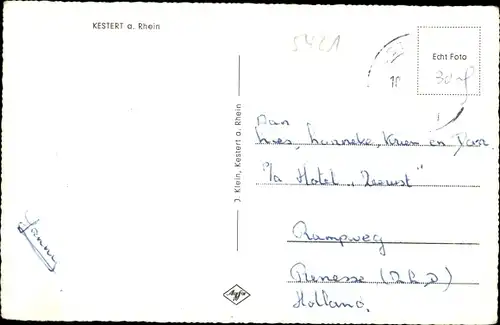 KESTERT a. Rhein
5421
Echt Foto
30
10
J. Klein, Kestert a. Rhein
Aan
hanneke, en
P/a Hotel „Zeerust"
Rampweg
Renesse (Z.L.D)
Holland.
Agfa